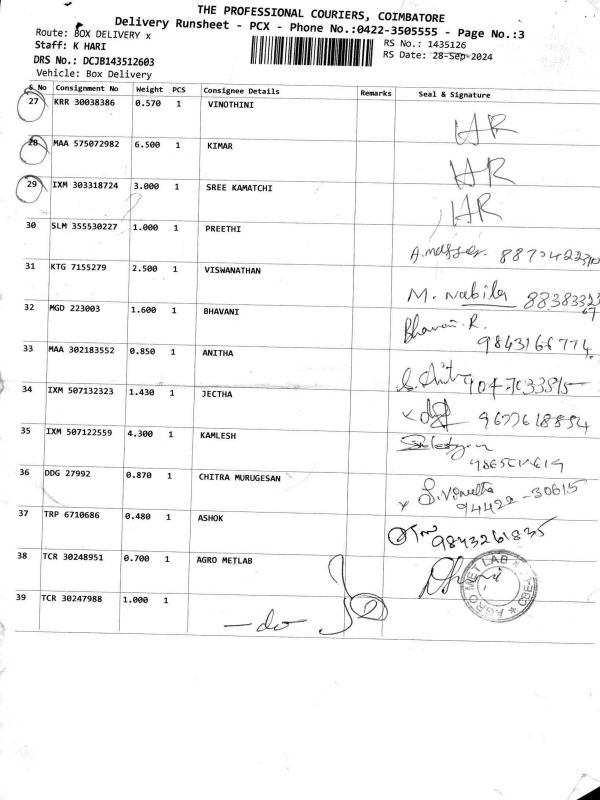 THE PROFESSIONAL COURIERS, COIMBATORE
Delivery Runsheet - PCX - Phone No.:0422-3505555 - Page No.:3
Route: BOX DELIVERY x
Staff: K HARI
RS No.: 1435126
DRS No.: DCJB143512603
RS Date: 28-Sep-2024
Vehicle: Box Delivery
S.No Consignment No Weight PCS Consignee Details Remarks Seal & Signature
27 KRR 30038386 0.570 1 VINOTHINI HR
28 MAA 575072982 6.500 1 KIMAR HR
29 IXM 303318724 3.000 1 SREE KAMATCHI HR
30 SLM 355530227 1.000 1 PREETHI
31 KTG 7155279 2.500 1 VISWANATHAN M. Nabila 8838332367
32 MGD 223003 1.600 1 BHAVANI Bhavani. R. 9843166774
33 MAA 302183552 0.850 1 ANITHA
34 IXM 507132323 1.430 1 JECTHA 9677618854
35 IXM 507122559 4.300 1 KAMLESH
36 DDG 27992 0.870 1 CHITRA MURUGESAN 94422-30615
37 TRP 6710686 0.480 1 ASHOK 9843261835
38 TCR 30248951 0.700 1 AGRO METLAB
AGRO MET LAB * CBE *
39 TCR 30247988 1.000 1 -do-